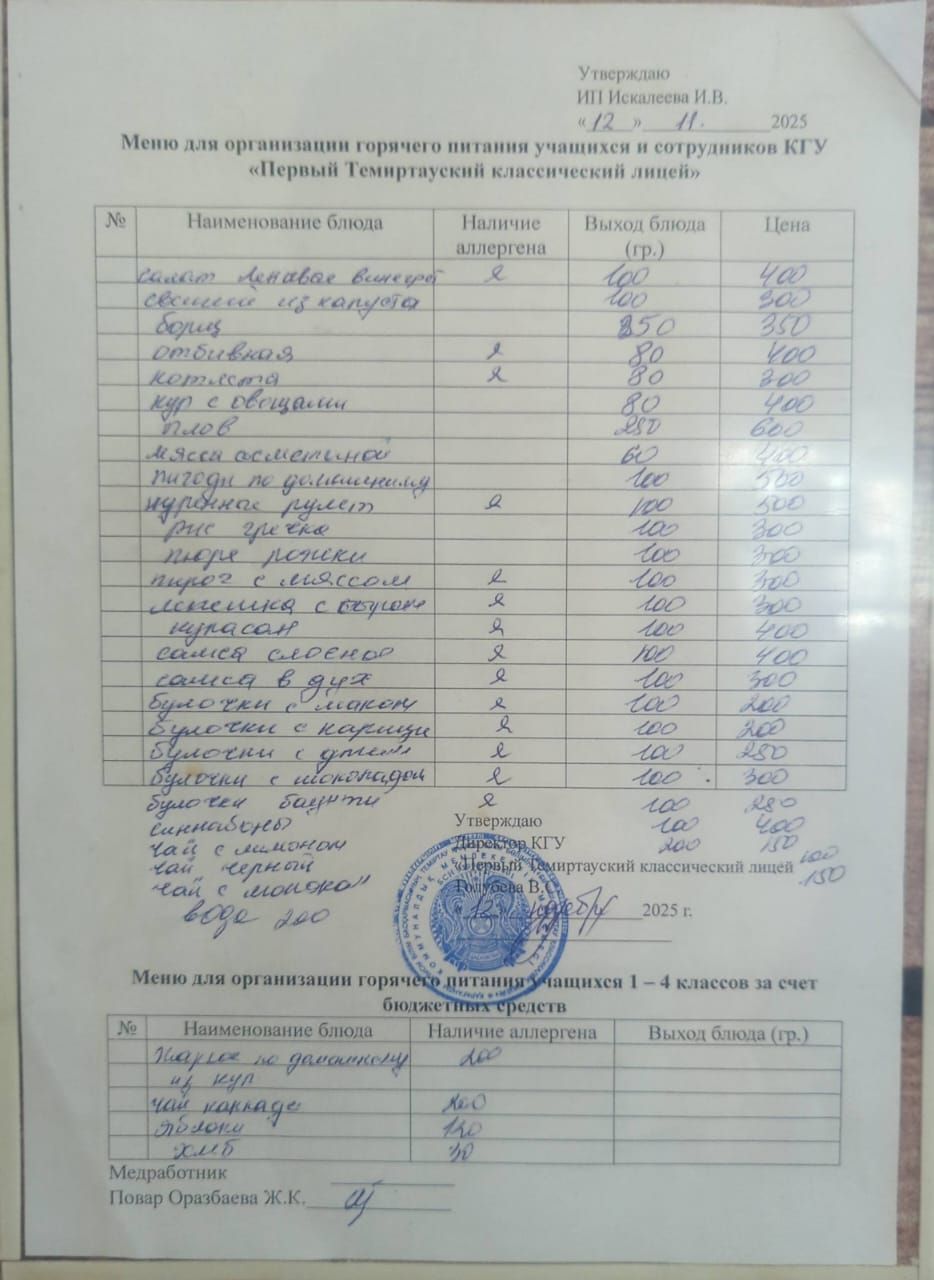 Утверждаю
ИП Искалеева И.В.
«12» 11. 2025
Меню для организации горячего питания учащихся и сотрудников КГУ
«Первый Темиртауский классический лицей»
№ Наименование блюда Наличие аллергена Выход блюда (гр.) Цена
салат я 100 400
из капуста 100 300
борщ 350
отбивная я 80 400
котлета я 80 300
кур с овощами 80 400
плов 250 600
мясса 60 400
по домашнему 100 500
рулет я 100 500
рис гречка 100 300
пюре рожки 100 300
пирог с мяссом я 100 300
лепешка с я 100 300
курасан я 100 400
самса слоеное я 100 400
самса в дух я 100 300
булочки с маком я 100 200
булочки с я 100 200
булочки с я 100 250
булочки с шоколадом я 100 300
булочки баунти я 100 250
синнабоны 100 400
чай с лимоном 200 150
чай черный 100
чай с молоком 150
вода 200
Утверждаю
Директор КГУ
«Первый Темиртауский классический лицей
Голубева В.С.
«12» ноября 2025 г.
Меню для организации горячего питания учащихся 1 – 4 классов за счет
бюджетных средств
№ Наименование блюда Наличие аллергена Выход блюда (гр.)
Жаркое по домашнему 200
из кур
чай каркаде 200
яблоки 120
хлеб 30
Медработник
Повар Оразбаева Ж.К.